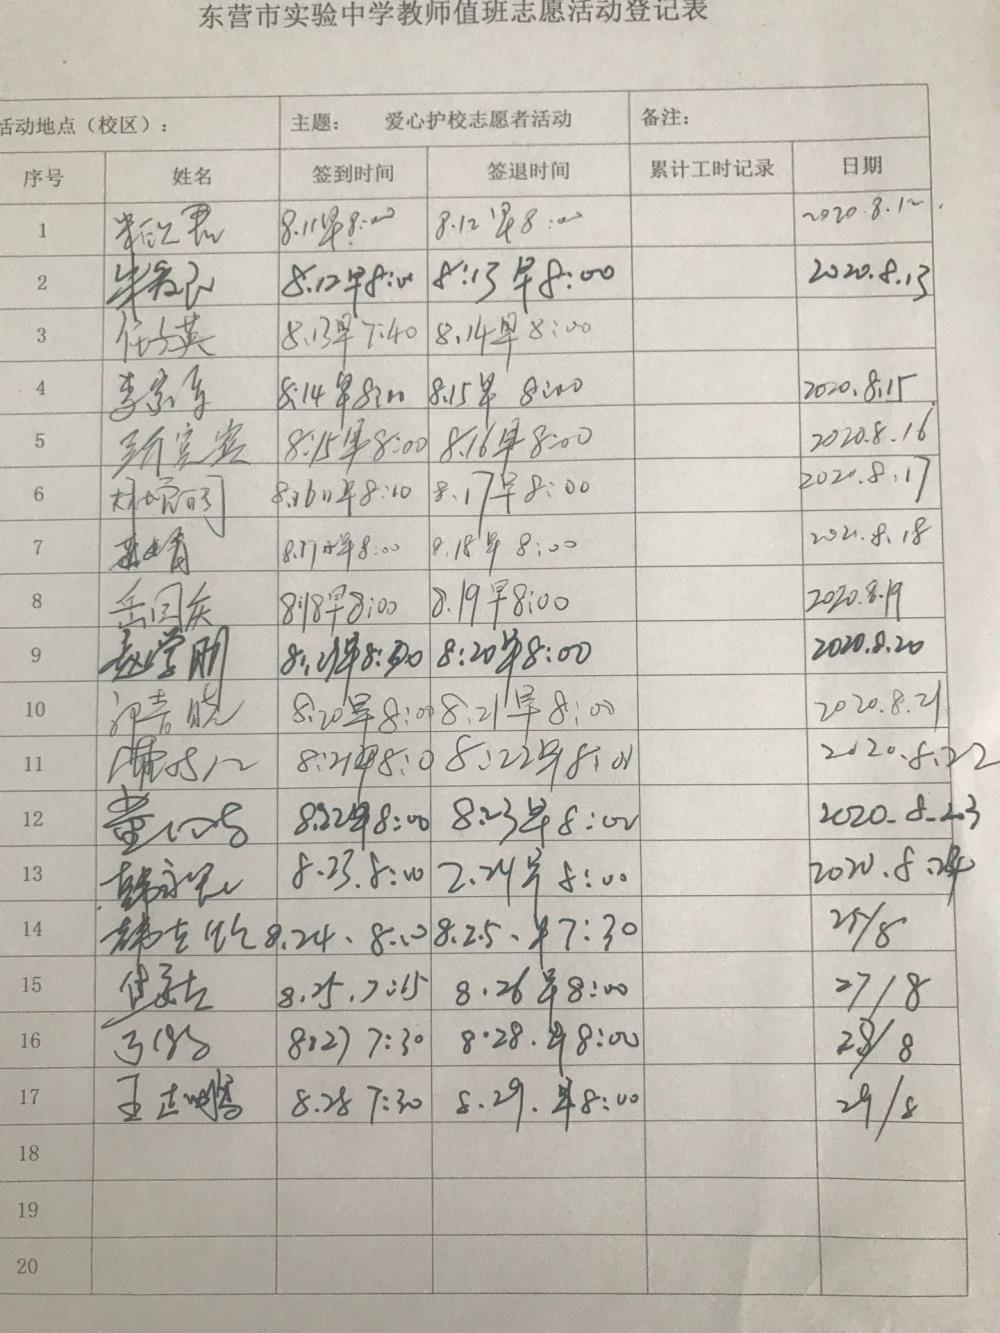 东营市实验中学教师值班志愿活动登记表
活动地点（校区）： 主题： 爱心护校志愿者活动 备注：
序号 姓名 签到时间 签退时间 累计工时记录 日期
1 8.11早8:00 8.12早8:00 2020.8.12
2 8.12早8:00 8:13早8:00 2020.8.13
3 任子英 8.13早7:40 8.14早8:00
4 李家军 8:14早8:00 8.15早 8:00 2020.8.15
5 8:15早8:00 8.16早8:00 2020.8.16
6 林增明 早8:10 8.17早8:00 2020.8.17
7 早8:00 8.18早 8:00 8.18
8 岳国庆 8.18早8:00 8.19早8:00 2020.8.19
9 赵学刚 8:20早8:00 2020.8.20
10 8:20早8:00 8:21早8:00 2020.8.21
11 8:21早8:0 8:22早8:01 2020.8.22
12 8.22早8:00 8:23早8:00 2020-8-23
13 8.23.8:00 2.24早8:00 2020.8.24
14 8.24、8:00 8.25、早7:30 25/8
15 8.25.7:15 8.26早8:00 27/8
16 8:27 7:30 8.28.早8:00 28/8
17 王志鹏 8.28 7:30 8.29.早8:00 29/8
18
19
20